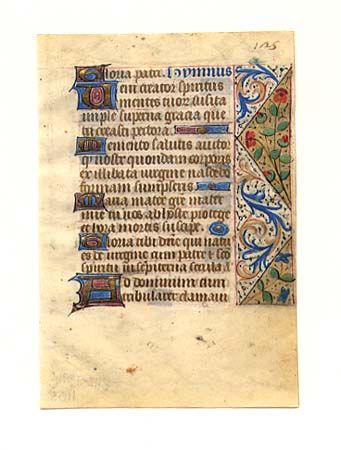 125
Gloria patri. Hymnus
Veni creator spiritus
mentes tuor visita
imple superna gracia que
tu creasti pectora
Memento salutis aucto
q nostri quondam corporis
ex illibata virgine nascedo
formam sumpseris
Maria mater gre mater
mie tu nos ab hoste protege
et hora mortis suscipe
Gloria tibi dne qui nat
es de virgine cum patre scō
spiritu in sepiterna secula a
Ad dominum cum
tribularer clamavi